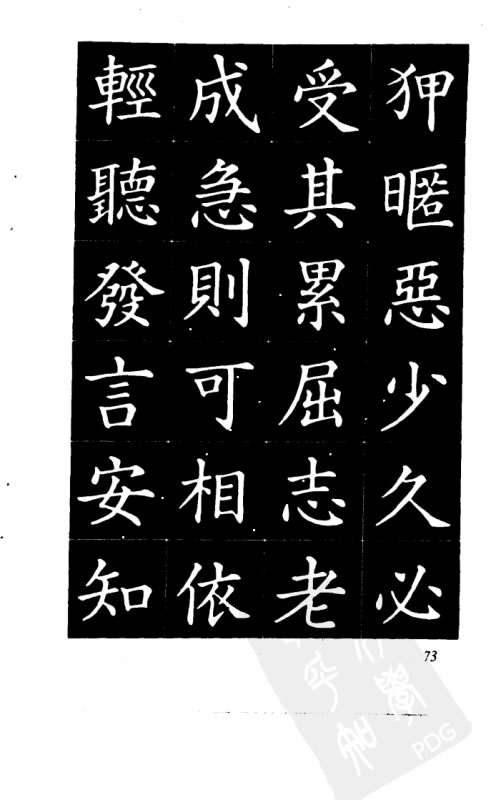 狎暱惡少久必
受其累屈志老
成急則可相依
輕聽發言安知
73
PDG